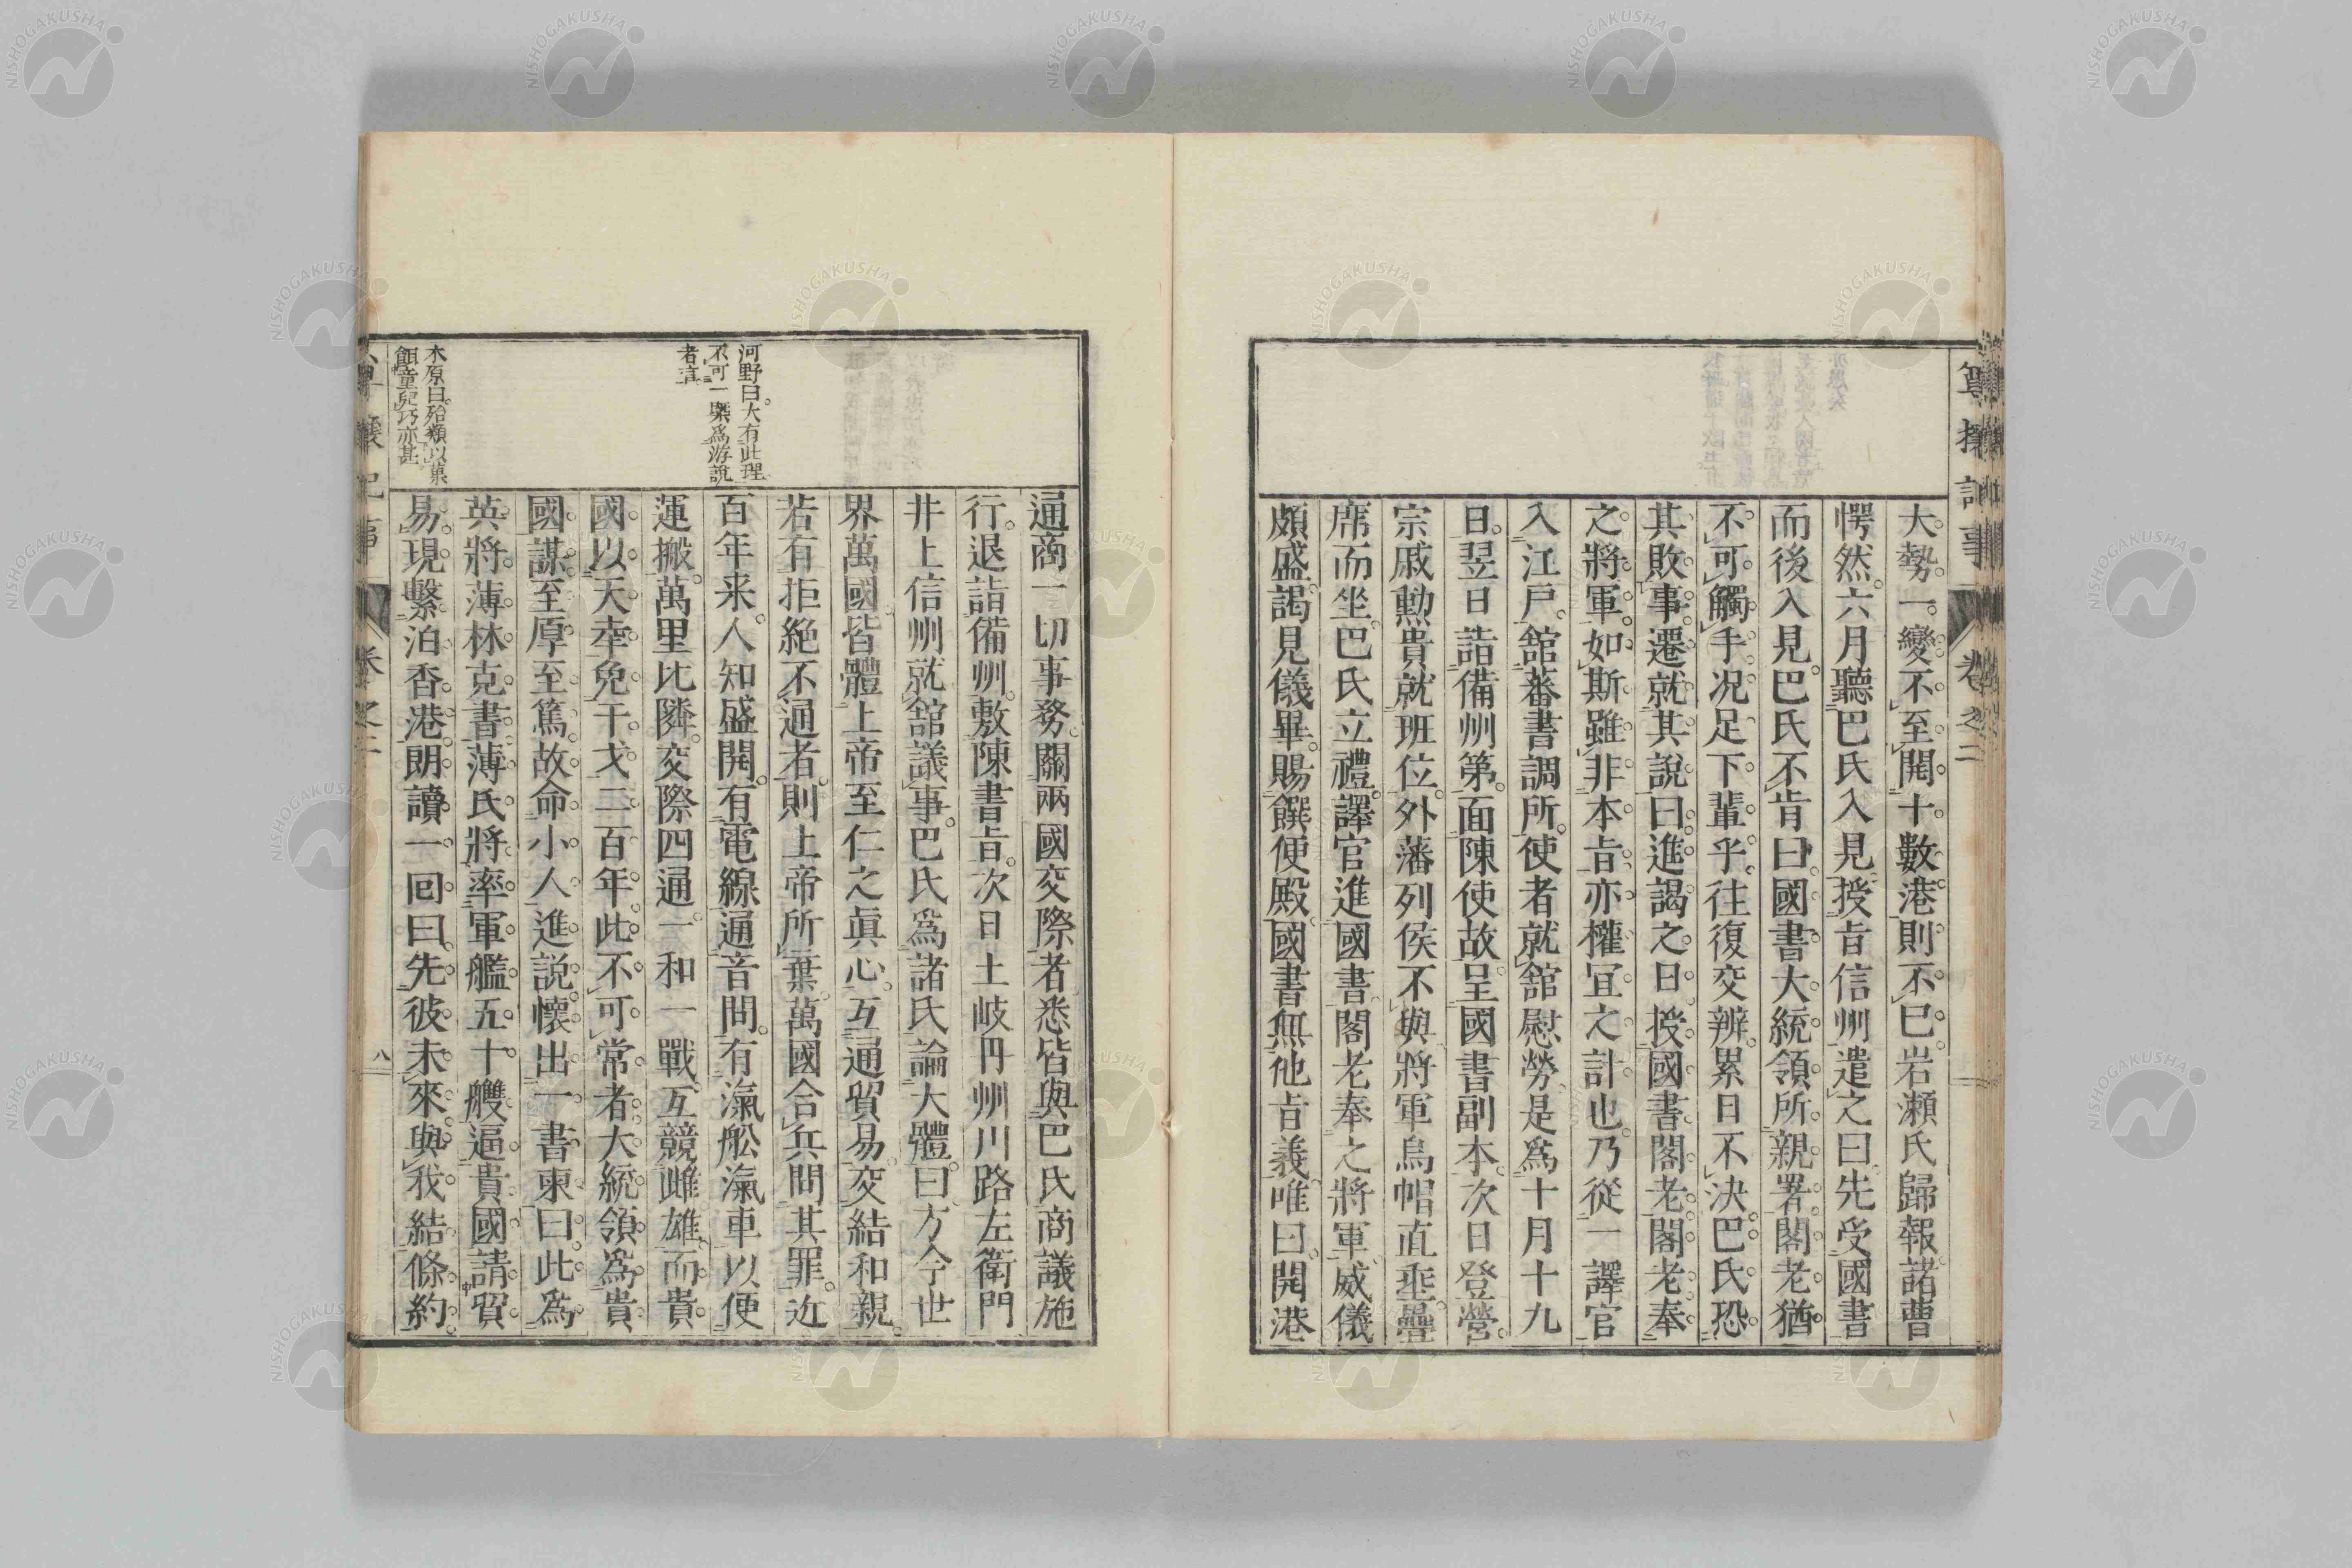 尊攘記事
卷之二
大勢一變不至開十數港則不已岩瀬氏歸報諸曹
愕然六月聽巴氏入見授旨信州遣之曰先受國書
而後入見巴氏不肯曰國書大統領所親署閣老猶
不可觸手况足下輩乎往復交辨累日不決巴氏恐
其敗事遷就其說曰進謁之日授國書閣老閣老奉
之將軍如斯雖非本旨亦權宜之計也乃從一譯官
入江戶舘蕃書調所使者就舘慰勞是爲十月十九
日翌日詣備州第面陳使故呈國書副本次日登營
宗戚勳貴就班位外藩列侯不與將軍烏帽直垂疊
席而坐巴氏立禮譯官進國書閣老奉之將軍威儀
頗盛謁見儀畢賜饌便殿國書無他旨義唯曰開港
通商一切事務關兩國交際者悉皆與巴氏商議施
行退詣備州敷陳書旨次日土岐丹州川路左衛門
井上信州就舘議事巴氏爲諸氏論大體曰方今世
界萬國皆體上帝至仁之眞心互通貿易交結和親
若有拒絶不通者則上帝所棄萬國合兵問其罪近
百年来人知盛開有電線通音問有滊舩滊車以便
運搬萬里比隣交際四通一和一戰互競雌雄而貴
國以天幸免干戈二百年此不可常者大統領爲貴
國謀至厚至篤故命小人進説懷出一書柬曰此爲
英將薄林克書薄氏將率軍艦五十艘逼貴國請貿
易現繫泊香港朗讀一回曰先彼未來與我結條約
河野曰大有此理
不可一槩爲游說
者言
木原曰殆類以菓
餌童兒巧亦甚
尊攘記事
卷之二
八
NISHOGAKUSHA